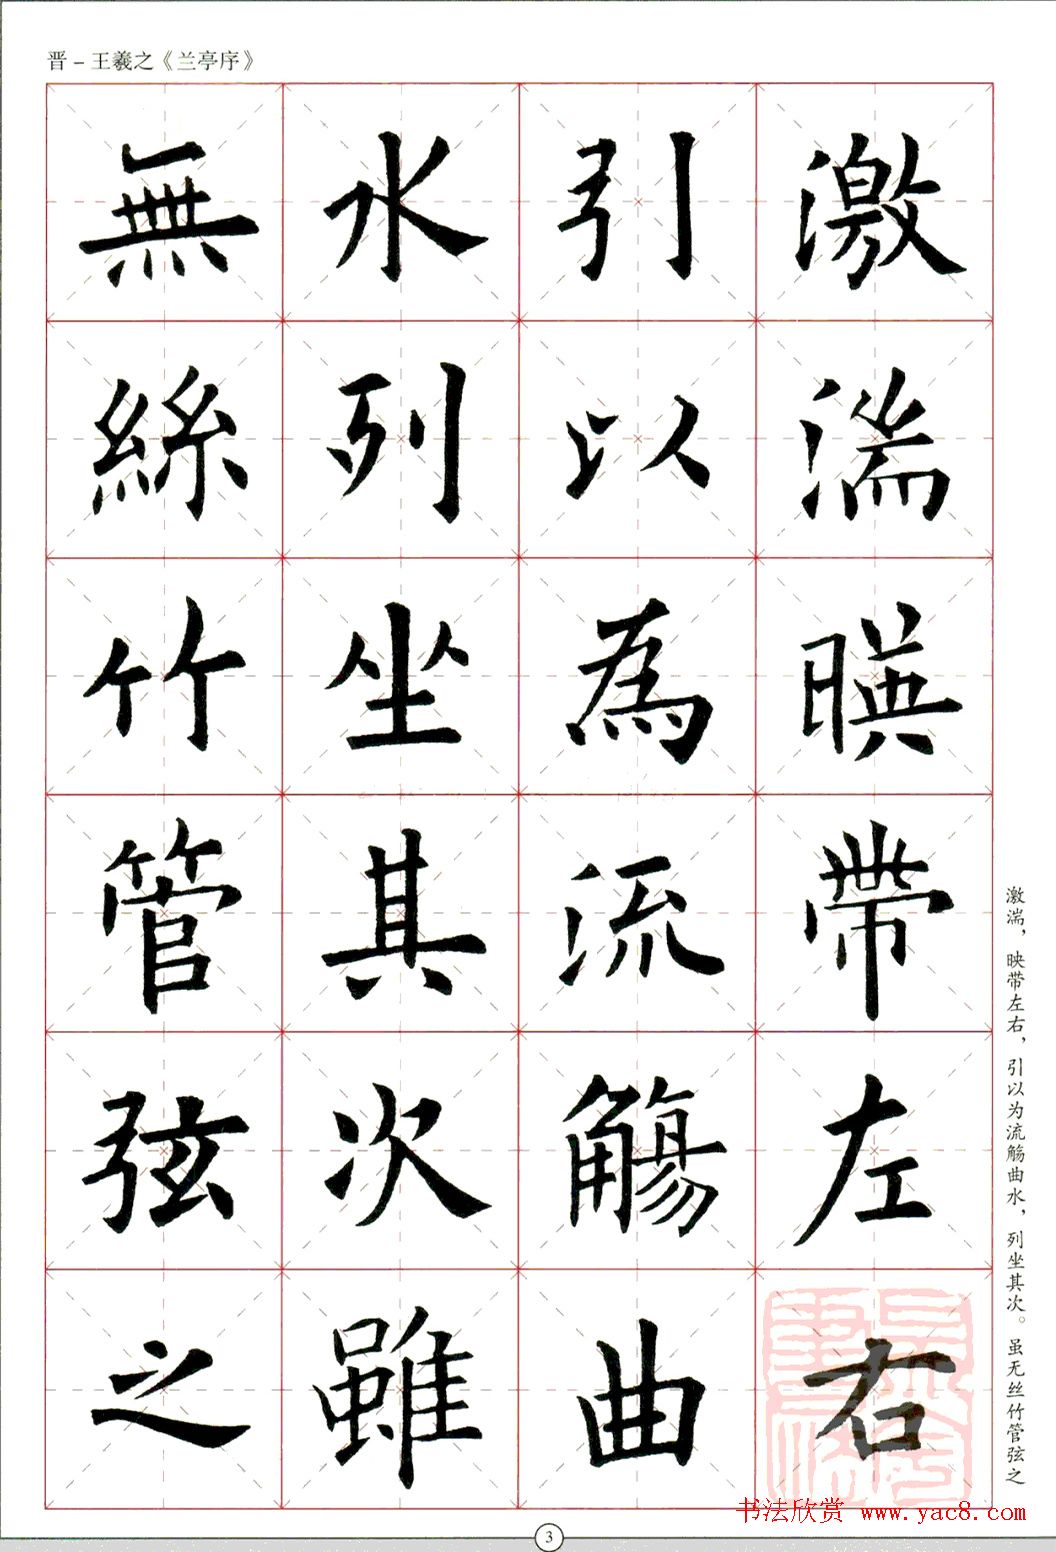 晋－王羲之《兰亭序》
激湍暎帶左右
引以為流觴曲
水列坐其次雖
無絲竹管弦之
激湍，映带左右，引以为流觞曲水，列坐其次。虽无丝竹管弦之
书法欣赏 www.yac8.com
3